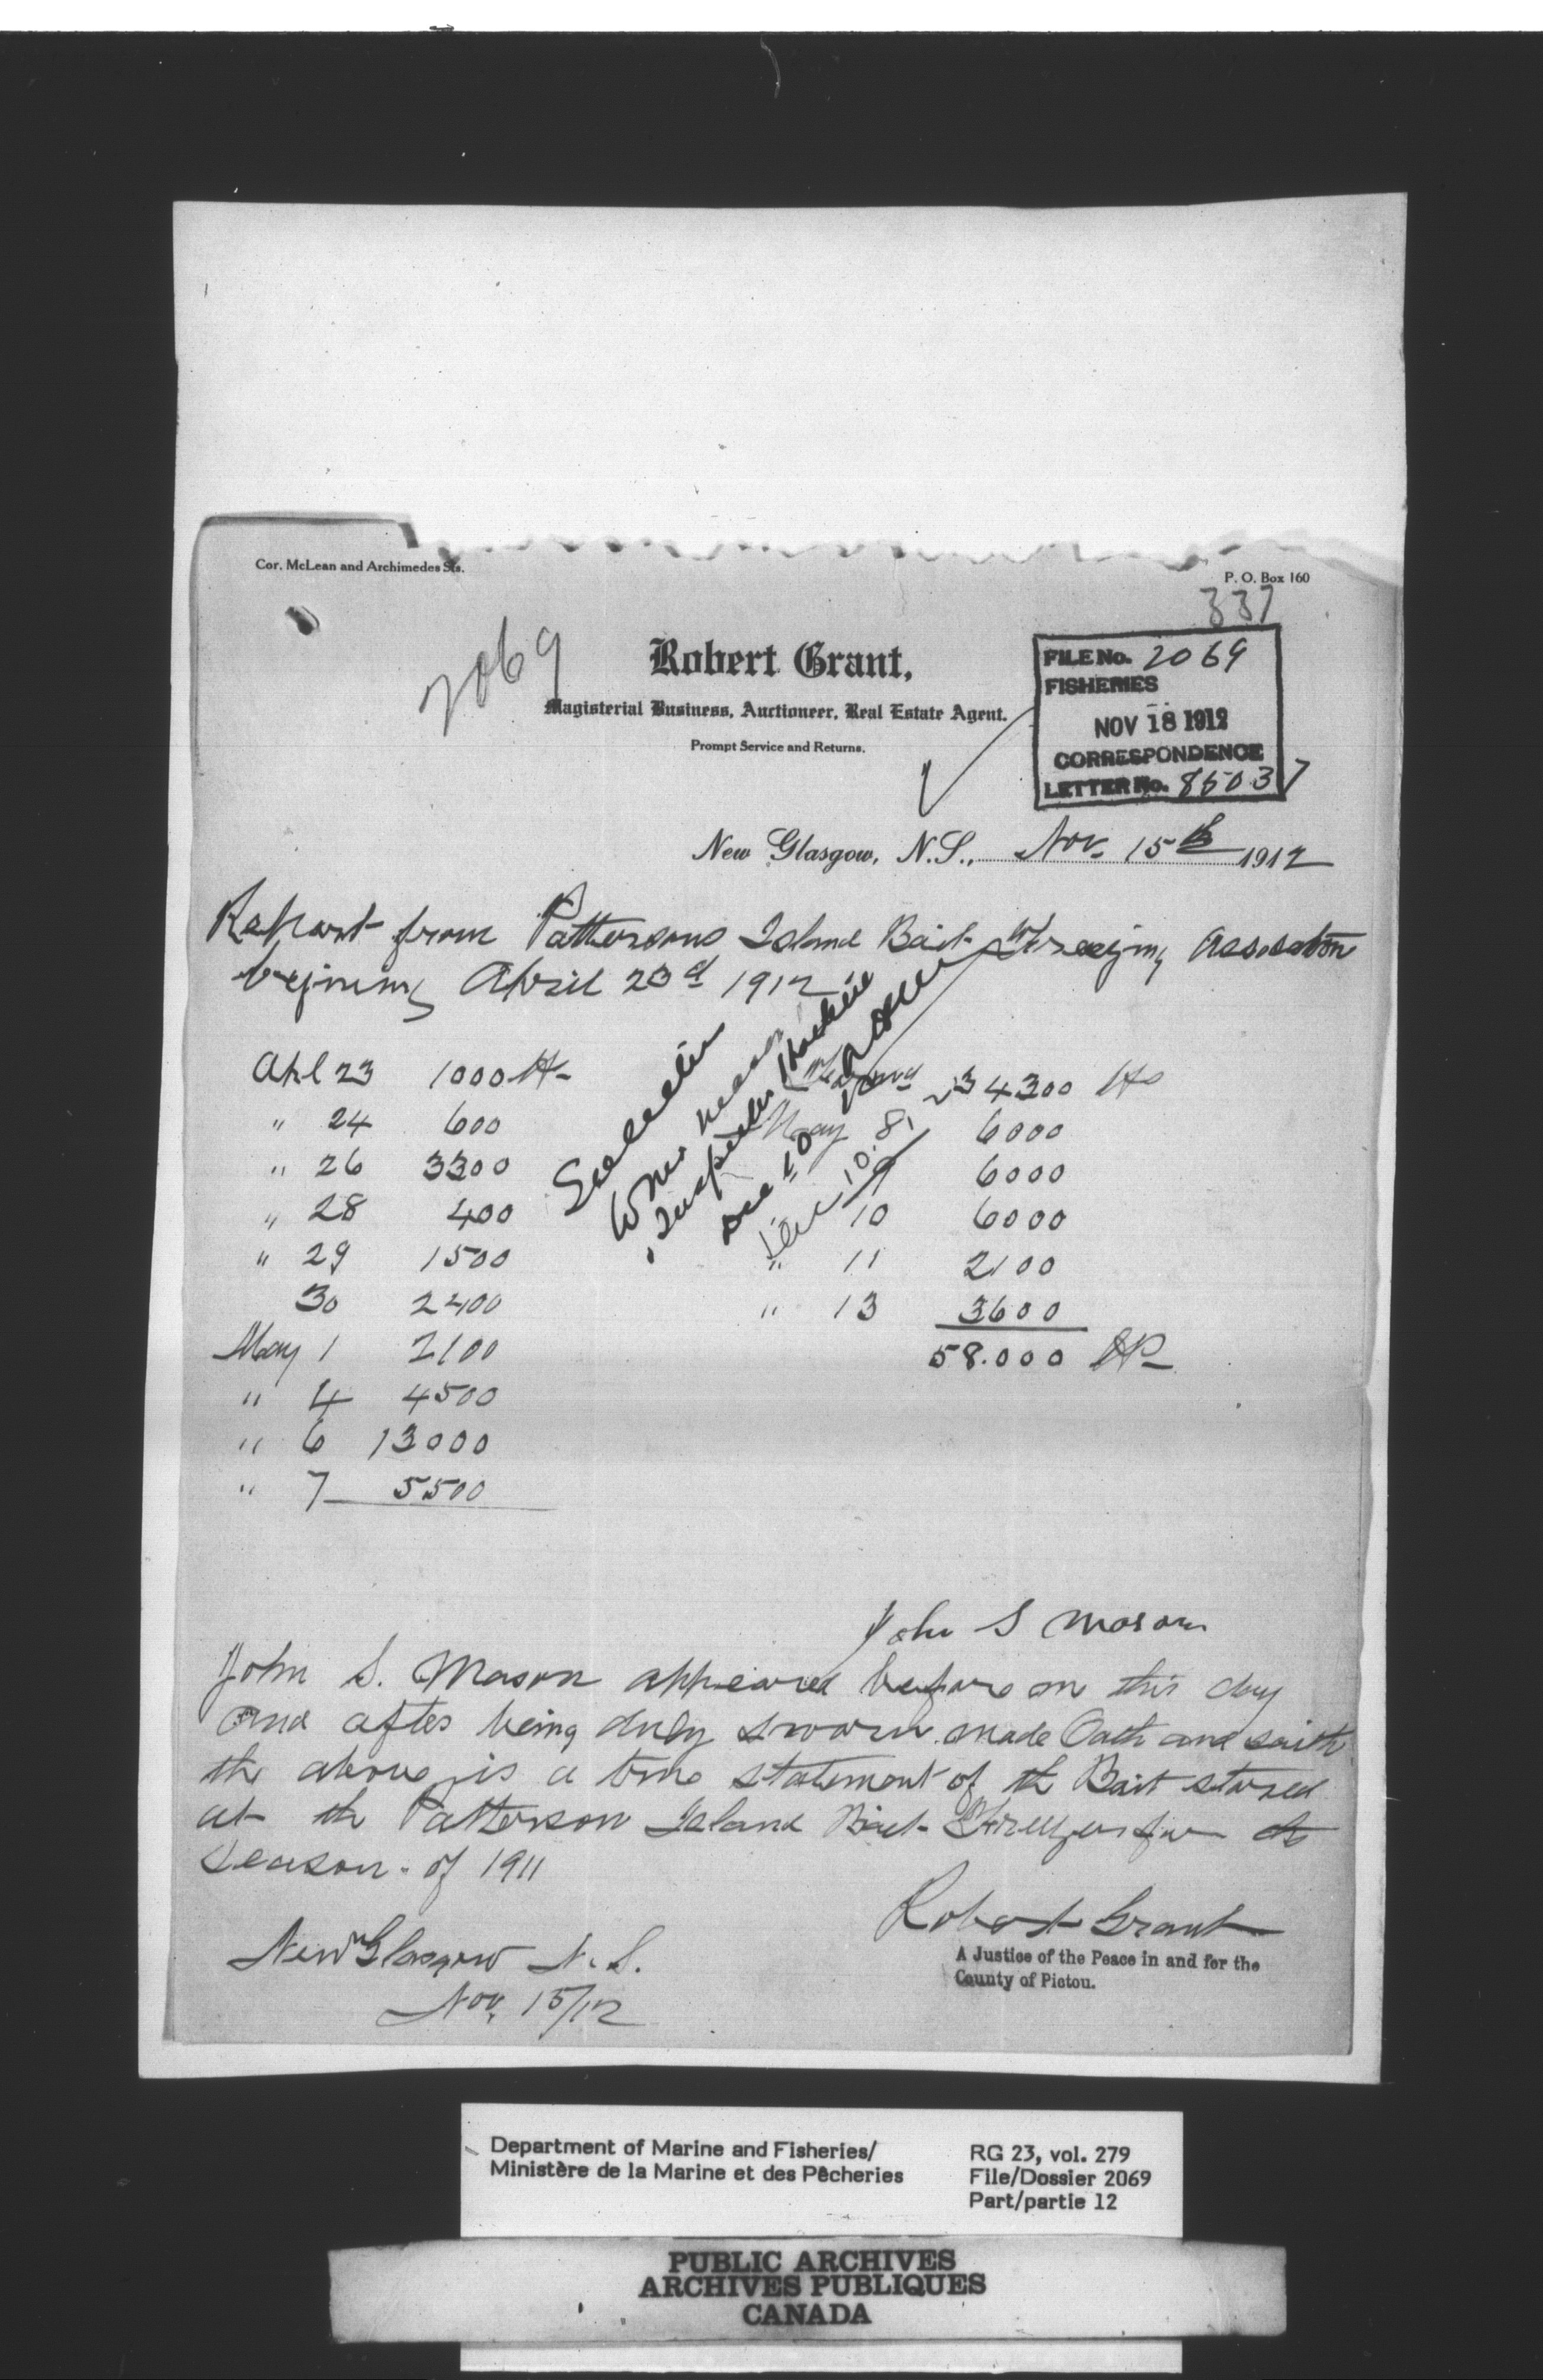 Cor. McLean and Archimedes Sts.
P. O. Box 160
337
2069
Robert Grant,
Magisterial Business, Auctioneer, Real Estate Agent.
Prompt Service and Returns.
FILE No. 2069
FISHERIES
NOV 18 1912
CORRESPONDENCE
LETTER No. 85037
New Glasgow, N.S., Nov. 15th 1912
Report from Pattersons Island Bait Freezing Association
begining April 23d 1912
Apl 23 1000 lbs
" 24 600
" 26 3300
" 28 400
" 29 1500
30 2400
May 1 2100
" 4 4500
" 6 13000
" 7 5500
34300 lbs
May 8 6000
9 6000
10 6000
" 11 2100
" 13 3600
58.000 lbs
John S Mason
John S. Mason appeared before me this day
and after being duly sworn made Oath and saith
the above is a true statement of the Bait stored
at the Patterson Island Bait Freezer for the
season of 1911
Robert Grant
A Justice of the Peace in and for the
County of Pictou.
New Glasgow N.S.
Nov. 15/12
Department of Marine and Fisheries/
Ministère de la Marine et des Pêcheries
RG 23, vol. 279
File/Dossier 2069
Part/partie 12
PUBLIC ARCHIVES
ARCHIVES PUBLIQUES
CANADA